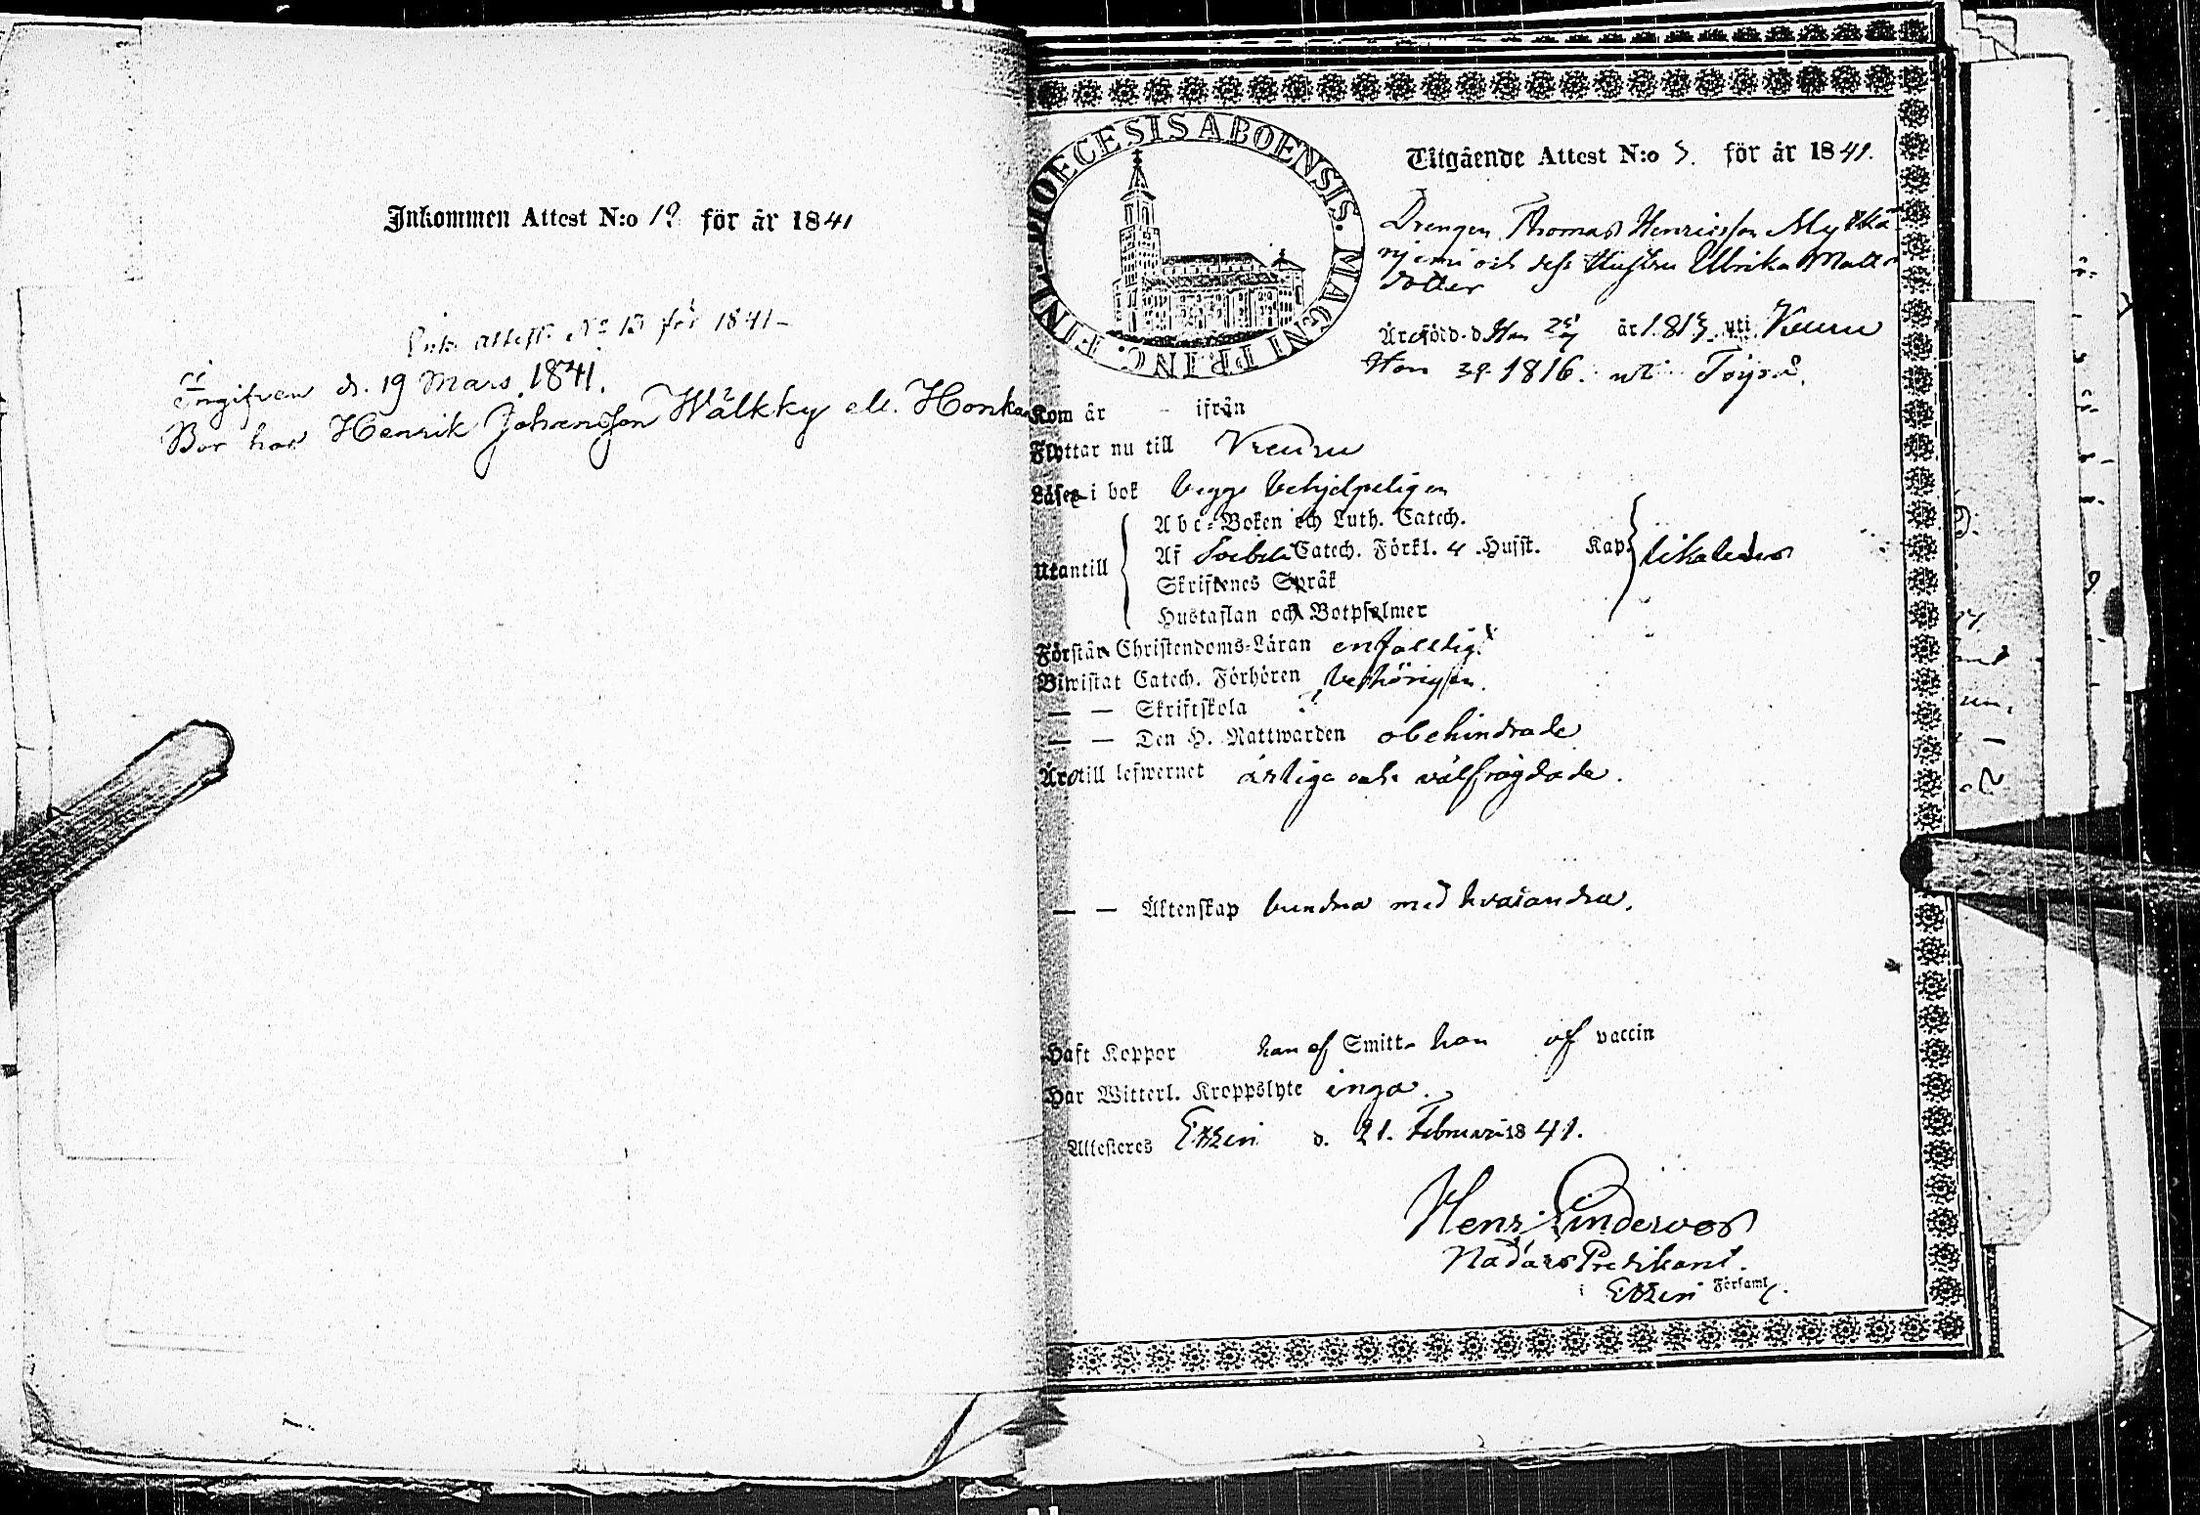 Inkommen Attest N:o för år 1841
attest N:o 13 för 1841
Ingifven d. 19 Mars 1841.
Bor hos Henrik Johansson Wälkky ell. Honka
DIOECESIS ABOENSIS. MAGNI PRINC. FINL.
Utgående Attest N:o 5. för år 1841.
Drengen Thomas Henricsson Myllkä
njemi och dess Hustru Ulrika Matts
dotter
Äro född. d. Han år 181 uti Keuru
Hon 1816. uti Töysä.
Kom år - ifrån
Flyttar nu till Keuru
Läser i bok begge behjelpeligen
Utantill
Abc-Boken och Luth. Catech.
Af Catech. Förkl. 4 Husst. Kap. likaledes
Skriftenes Språk
Hustaflan och Botpsalmer
Förstår Christendoms-Läran enfaldigt
Biwistat Catech. Förhören behörigen.
— — Skriftskola
— — Den H. Nattwarden obehindrade
Äro till lefwernet ärliga och välfrägdade.
— — Äktenskap bundna med hvarandra.
Haft Koppor han af Smitta hon af vaccin
Har Witterl. Kroppslyte inga.
Attesteras Etseri d. 21. Februari 1841.
Henr. Lindervos
Nådårs Predikant.
i Etseri Församl.